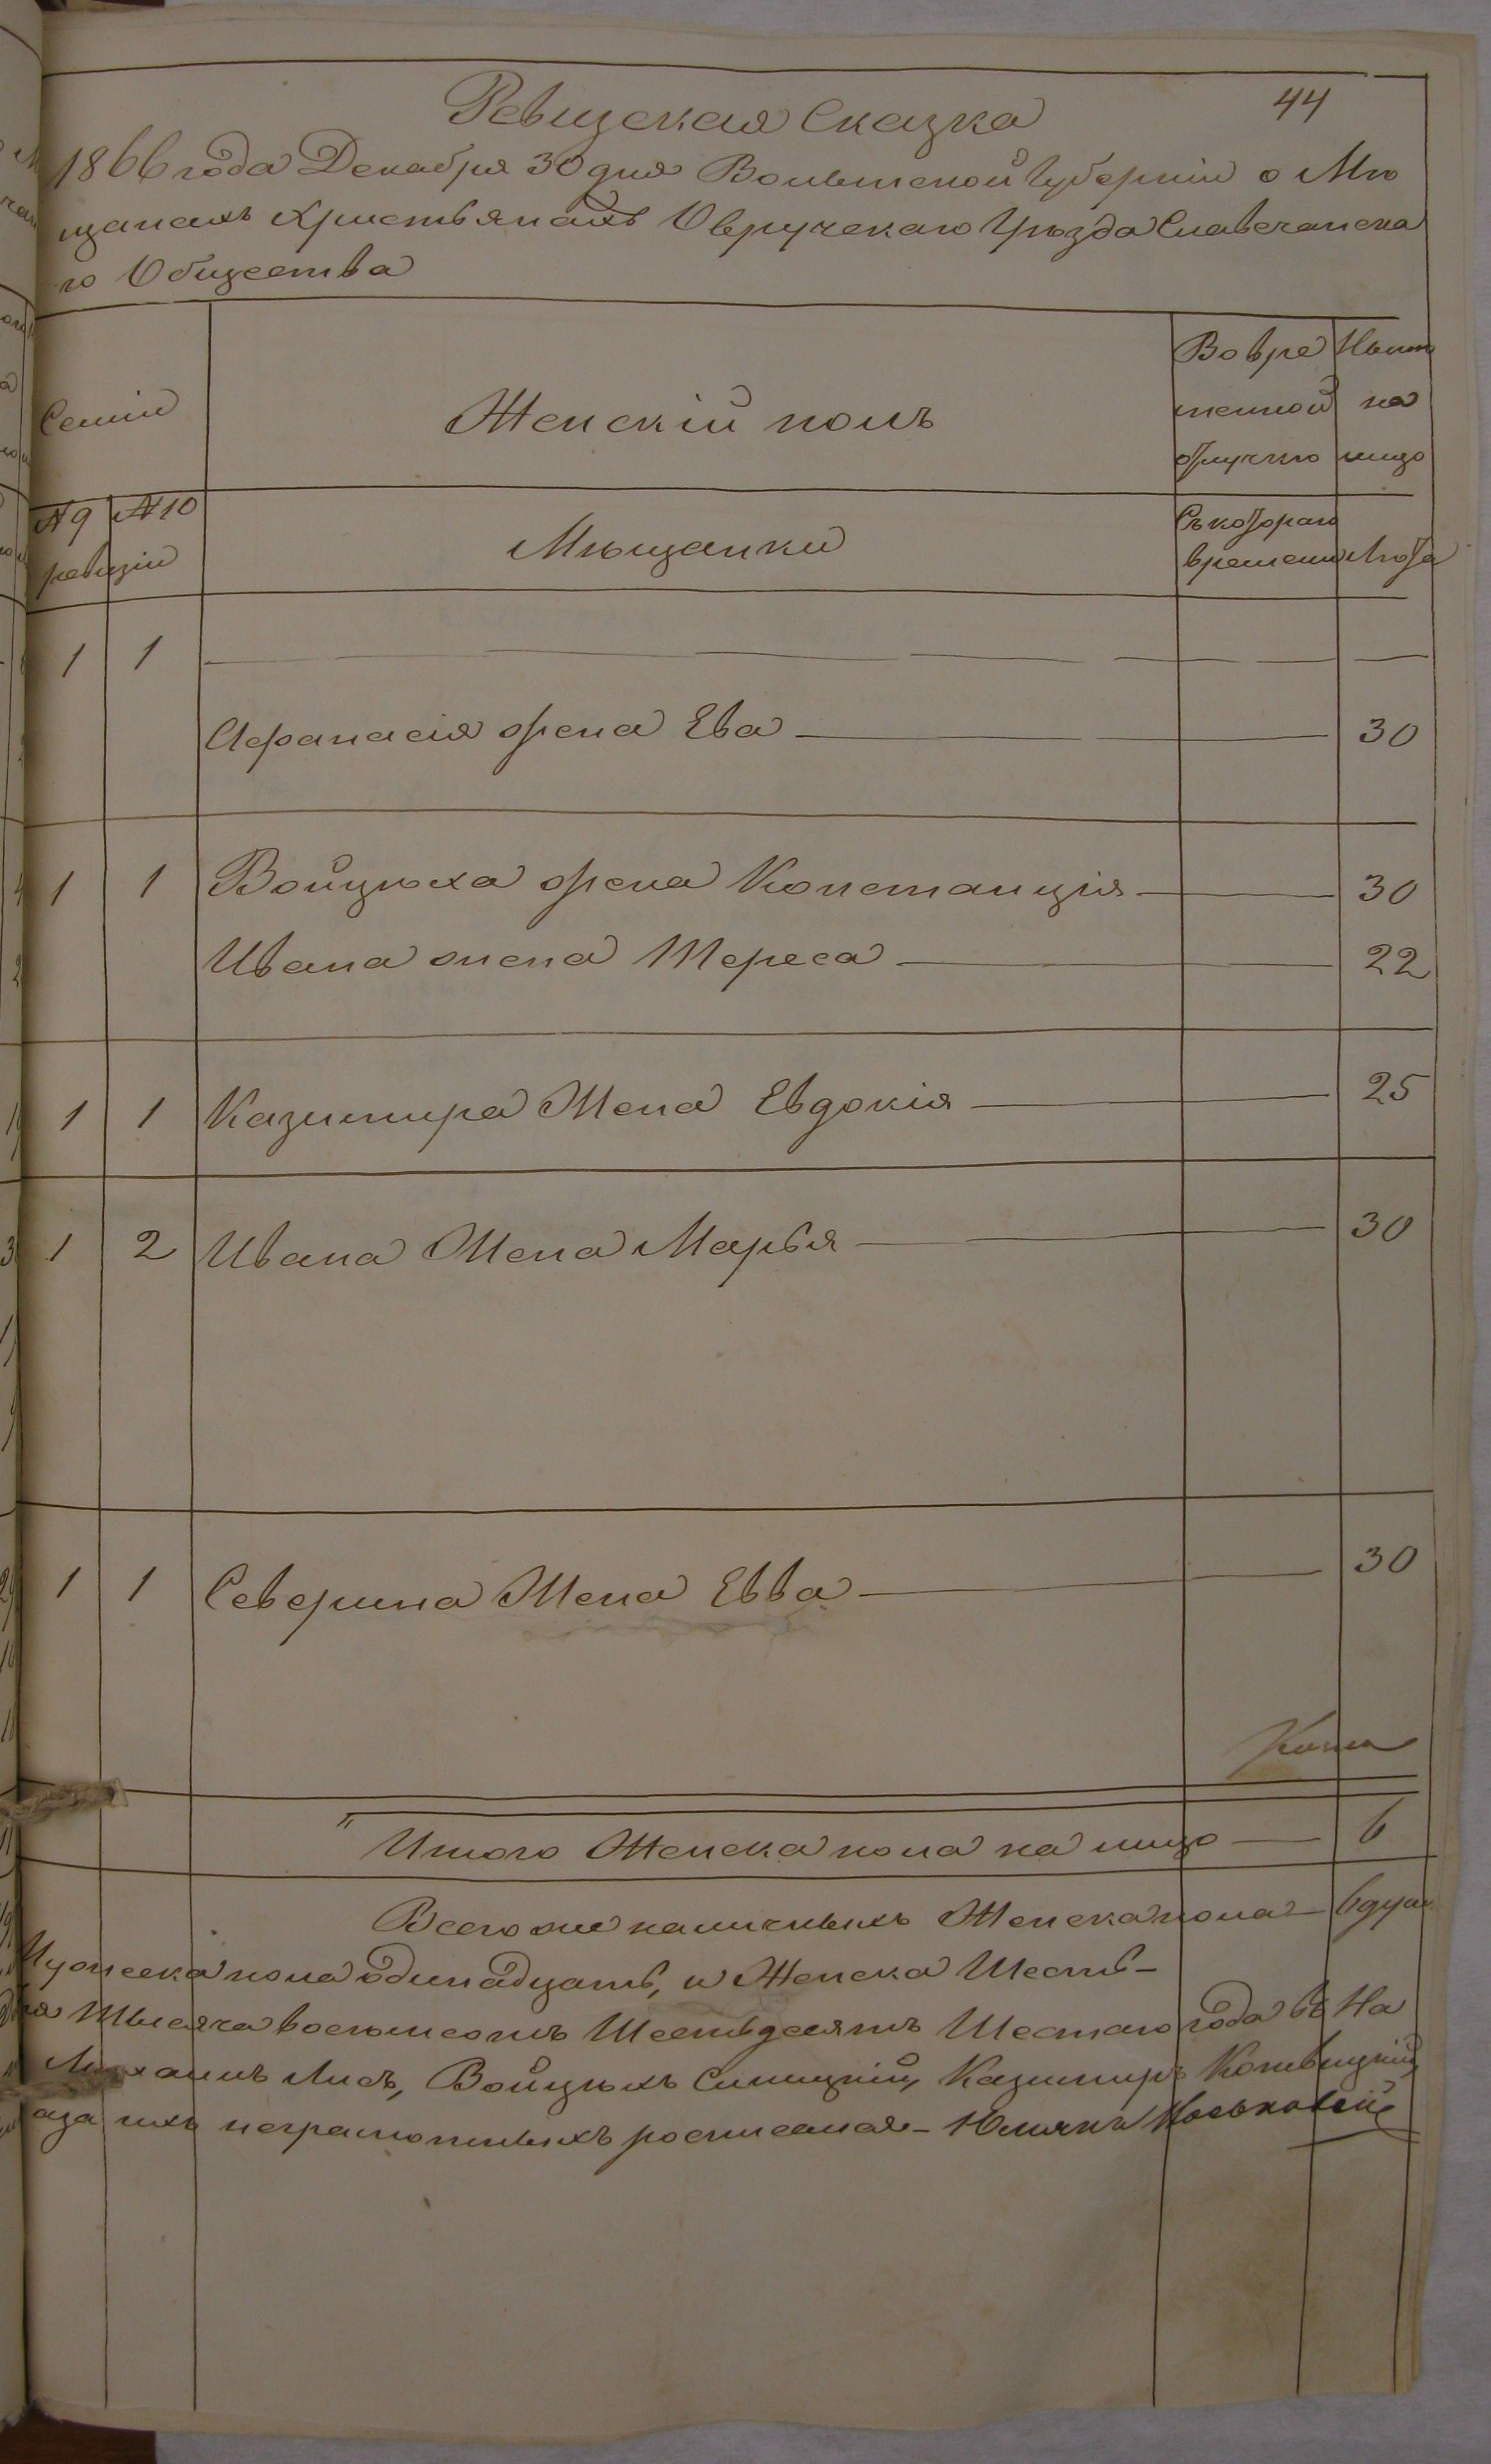 44
Ревизская Сказка
1866 года Декабря 30 дня Волынской Губернии о Мѣ
щанахъ христьянахъ Овручскаго Уѣзда Славечанска
го Общества
Семіи
Женскій полъ
Во вре
менной
отлучкѣ
на
лицо
№ 9 №10
ревизіи
Мѣщанки
Съ котораго
времени Лѣта
1 1
Афанасія жена Ева 30
1 1 Войцѣха жена Констанція 30
Ивана жена Тереса 22
1 1 Казимира Жена Евдокія 25
1 2 Ивана Жена Марья 30
1 1 Северина Жена Евва 30
Итого Женска пола на лицо 6
Всего же наличныхъ Женска пола 6 душ
Мужеска пола одинадцать, и Женска Шесть
Тысяча восемсотъ Шестьдесятъ Шестаго года въ На
Лисъ, Войцѣхъ Синицкій, Казимиръ
неграмотныхъ росписался